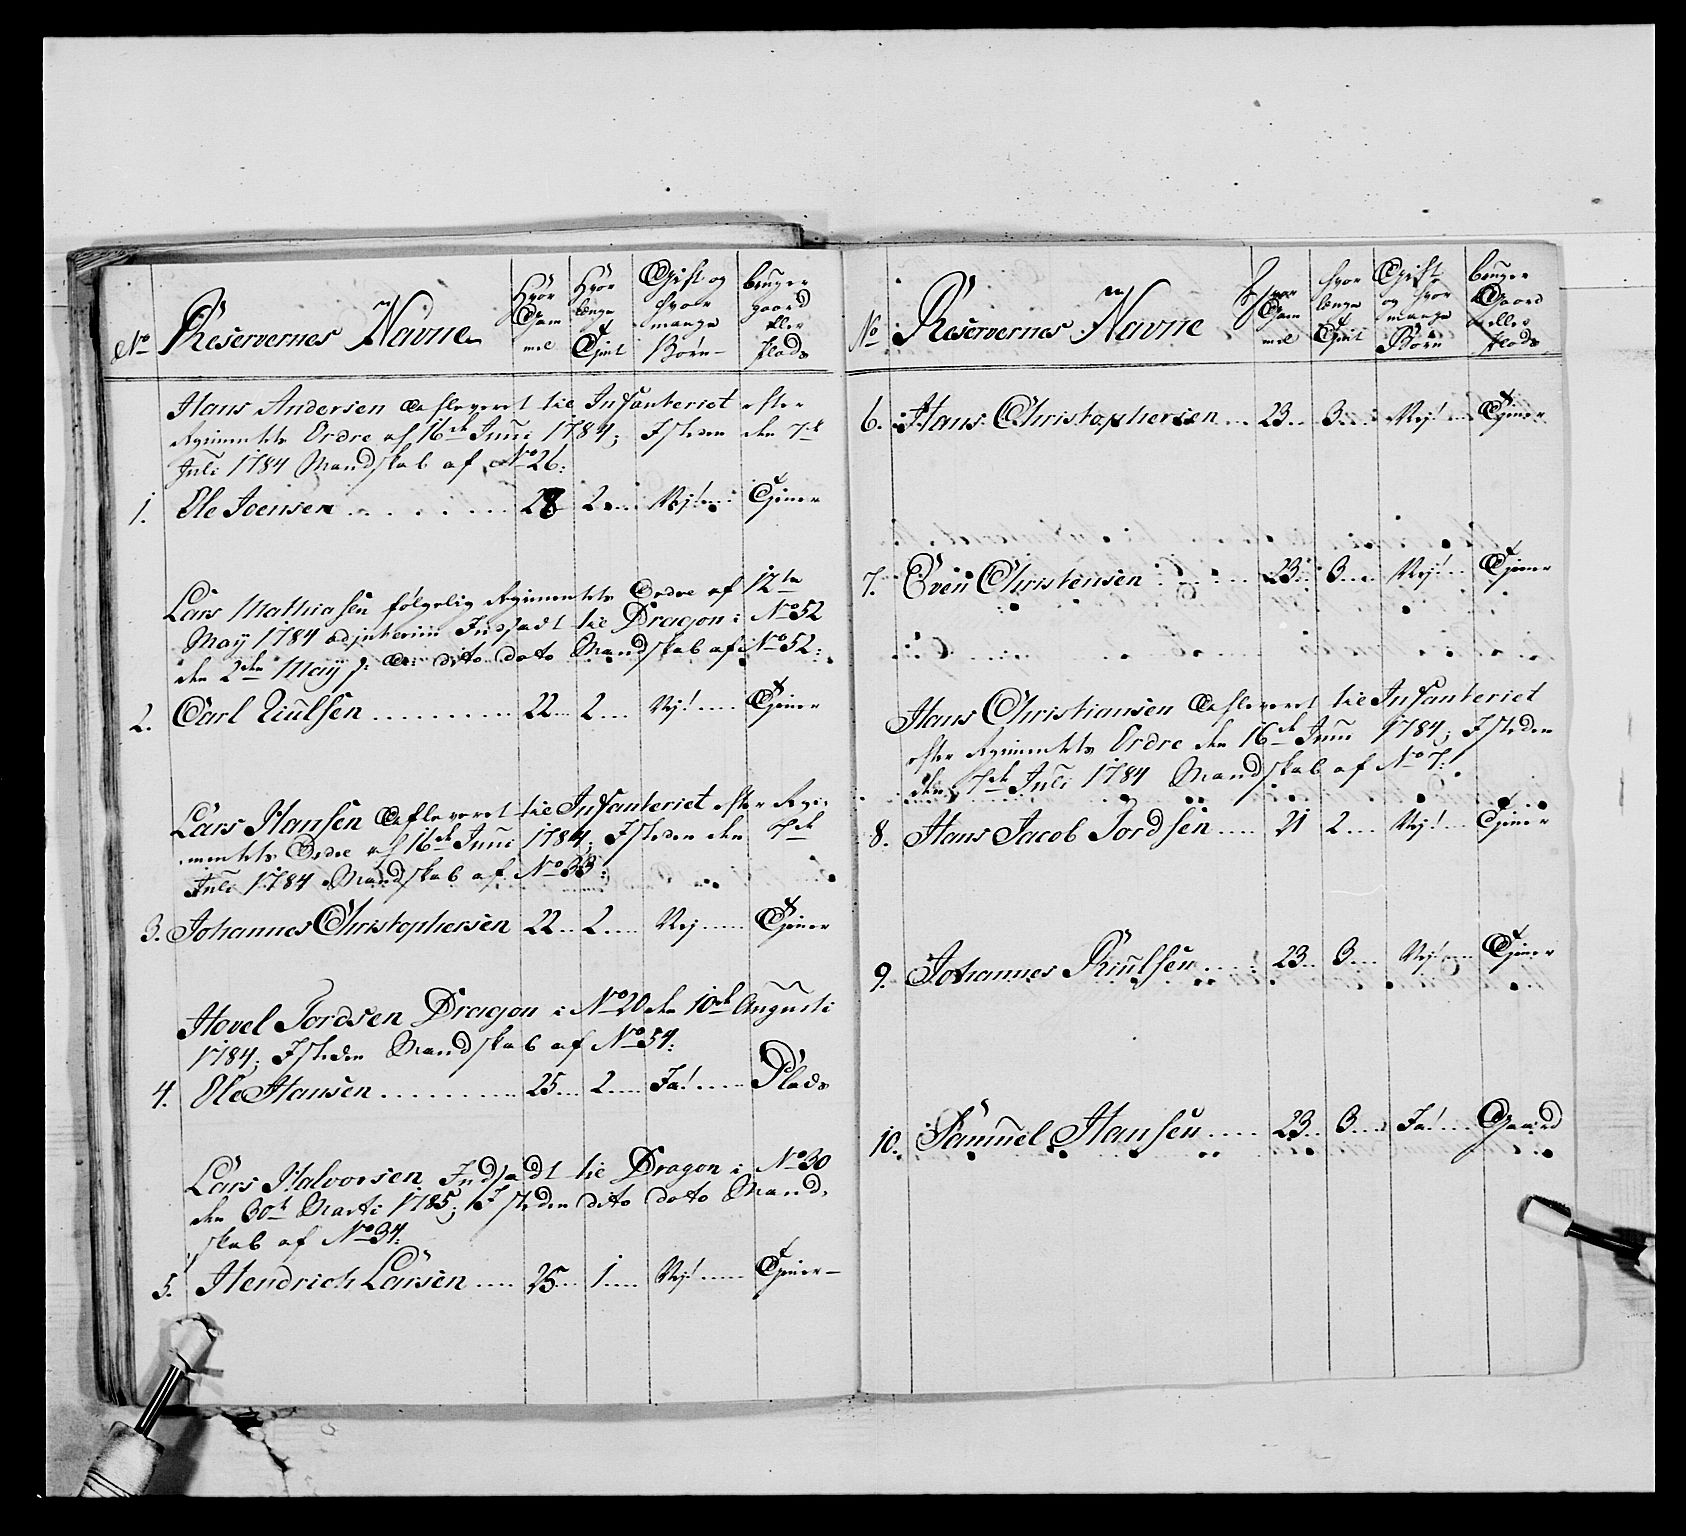 No Reservernes Navne Hvor Gam mel Hvor længe Tient Gift og hvor mange Børn bruger gaard eller plads
Hans Andersen afleveret til Infanteriet efter
Regimentets Ordre af 16de Junii 1784; Isteden den 7de
Juli 1784 Mandskab af No 26:
1. Ole Joensen 28 2 Nej! Tiener
Lars Mathiasen følgelig Regimentets Ordre af 12te
Maÿ 1784 adjnterim Indsadt til Dragon i No 52
den 2den Maÿ dito dato Mandskab af No 52:
2. Carl Niulsen 22 2 Nej! Tiener
Lars Hansen afleveret til Infanteriet efter Regi-
mentets Ordre af 16de Junii 1784; Isteden den 7de
Juli 1784 Mandskab af No 33:
3. Johannes Christophersen 22 2 Nej Tiener
Hovel Tordsen Dragon i No 20 den 10de Augusti
1784; Isteden Mandskab af No 54:
4. Ole Hansen 25 2 Ja! Plads
Lars Halvorsen Indsadt til Dragon i No 30
den 30te Marti 1785; Isteden dito dato Mand-
skab af No 34:
5. Hendrich Larsen 25 1 Nej! Tiener
No Reservernes Navne Hvor Gam mel hvor længe Tient Gift og hvor mange Børn bruger Gaard eller plads
6. Hans Christophersen 23 3 Nej! Tiener
7. Even Christensen 23 3 Nej! Tiener
Hans Christiansen afleveret til Infanteriet
efter Regimentets Ordre den 16de Junii 1784; Isteden
den 7de Juli 1784 Mandskab af No 7:
8. Hans Jacob Tordsen 21 2 Nej! Tiener
9. Johannes Knutsen 23 3 Nej! Tiener
10. Samuel Hansen 23 3 Ja! Gaard